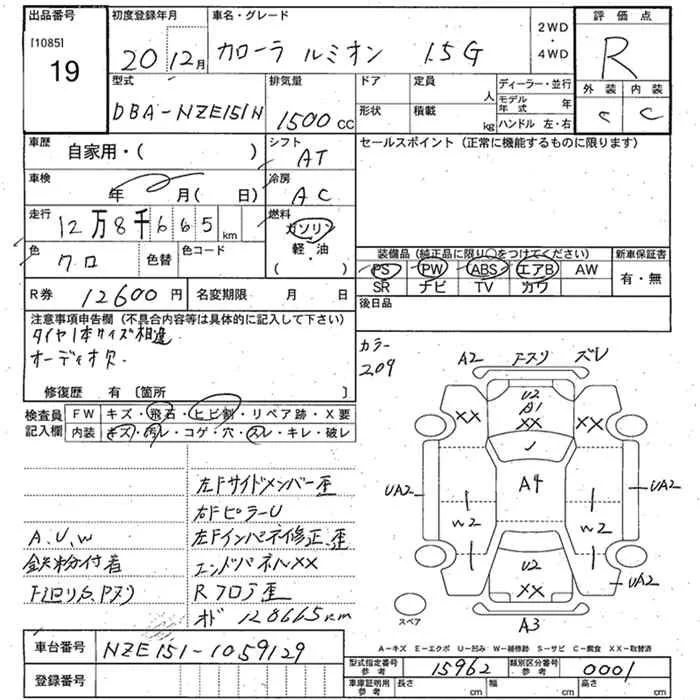 出品番号
[1085]
19
初度登録年月
20 12月
車名・グレード
カローラ ルミオン 1.5G
2WD
・
4WD
評価点
R
外装 内装
C C
型式
DBA-NZE151N
排気量
1500 CC
ドア
定員
人
ディーラー・並行
モデル年式
年
形状
積載
kg
ハンドル 左・右
車歴
自家用・( )
シフト
AT
セールスポイント (正常に機能するものに限ります)
車検
年 月( 日)
冷房
AC
走行
12万8千665km
燃料
ガソリン
軽・油
( )
色
クロ
色替
色コード
装備品 (純正品に限り○をつけてください)
新車保証書
PS PW ABS エアB AW
有・無
SR ナビ TV カワ
R券
12600円
名変期限 月 日
後日品
注意事項申告欄 (不具合内容等は具体的に記入して下さい)
タイヤ1本サイズ相違
オーディオ欠
修復歴 有 〔箇所 〕
カラー
209
検査員
記入欄
FW キズ・飛石・ヒビ割・リペア跡・X要
内装 キズ・汚レ・コゲ・穴・スレ・キレ・破レ
左Fサイドメンバー歪
右FピラーU
A.U.W
左Fインパネ修正、歪
鉄粉付着
エンドパネルXX
下回りS、Pスリ
Rフロア歪
オド 128665km
A2 Fスリ ズレ
U2
A1
XX
XX
XX
A4
UA2
UA2
W2
W2
U2
XX
UA2
A3
スペア
A-キズ E-エクボ U-凹み W-補修跡 S-サビ C-腐食 XX-取替済
車台番号
NZE151-1059129
登録番号
型式指定番号
参考
15962
類別区分番号
参考
0001
車庫証明用
参考
長さ
cm
幅
cm
高さ
cm